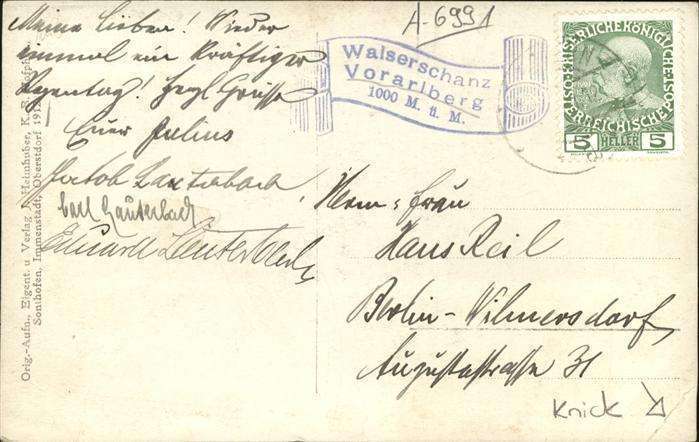 Meine Lieben! Wieder
einmal ein kräftiger
Regentag! Herzl Grüsse
Euer Julius
Jakob Lauterbach
Carl Lauterbach
Eduard Lauterbach
Orig.-Aufn., Eigent. u Verlag J. Heimhuber, K. B. Hofph
Sonthofen, Immenstadt, Oberstdorf 19
A-6991
Walserschanz
Vorarlberg
1000 M. ü. M.
KAISERLICHE KÖNIGLICHE
OESTERREICHISCHE POST
5 HELLER 5
Herrn & Frau
Hans Reil
Berlin-Wilmersdorf
Augustastrasse 31
Knick